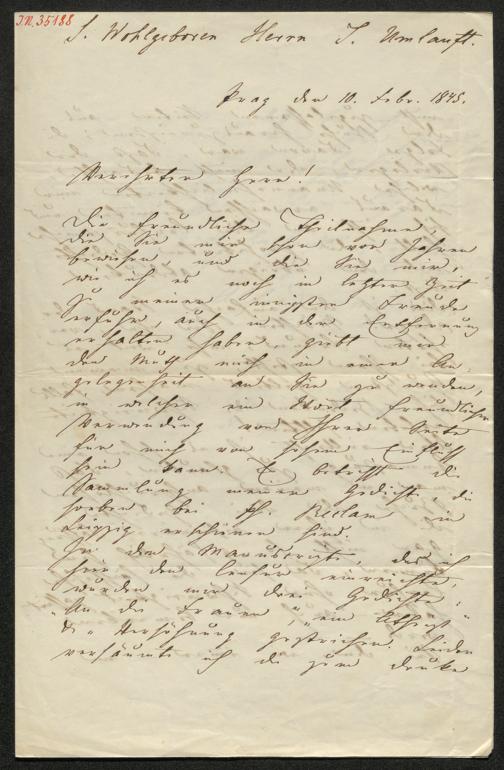 I.N. 35188
S. Wohlgeboren Herrn J. Umlauft.
Prag den 10. Febr. 1845.
Verehrter Herr!
Die freundliche Theilnahme,
die Sie mir schon vor Jahren
bewiesen, und die Sie mir,
wie ich es noch in letzter Zeit
zu meiner innigsten Freude
erfuhr, auch in der Entfernung
erhalten haben, giebt mir
den Muth mich in einer An
gelegenheit an Sie zu wenden,
in welcher ein Wort freundlicher
Verwendung von Ihrer Seite
für mich von hohem Einfluß
sein kann. Es betrifft die
Sammlung meiner Gedichte, die
soeben bei Ph. Reclam in
Leipzig erschienen sind.
In dem Manuscripte, das ich
hier der Censur einreichte,
wurden mir drei Gedichte:
„An die Frauen", „ein Atheist"
& „Versöhnung gestrichen. Leider
versäumte ich die zum Drucke